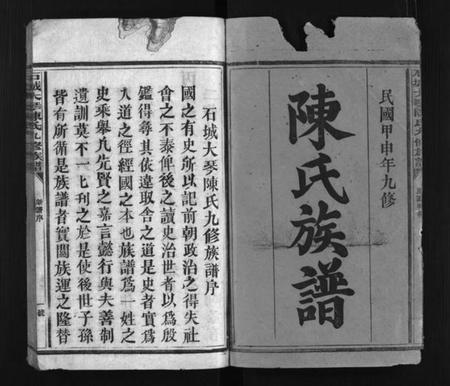 民國甲申年九修
陳氏族譜
石城大琴陳氏九修族譜序
國之有史所以記前朝政治之得失社
會之不泰俾後之讀史治世者以為殷
鑑得尋其依違取舍之道是史者實為
人道之徑經國之本也族譜為一姓之
史乘舉凡先賢之嘉言懿行與夫善制
遺訓莫不一七刋之於是使後世子孫
皆有所循是族譜者實關族運之隆替
石城大琴陳氏九修族譜